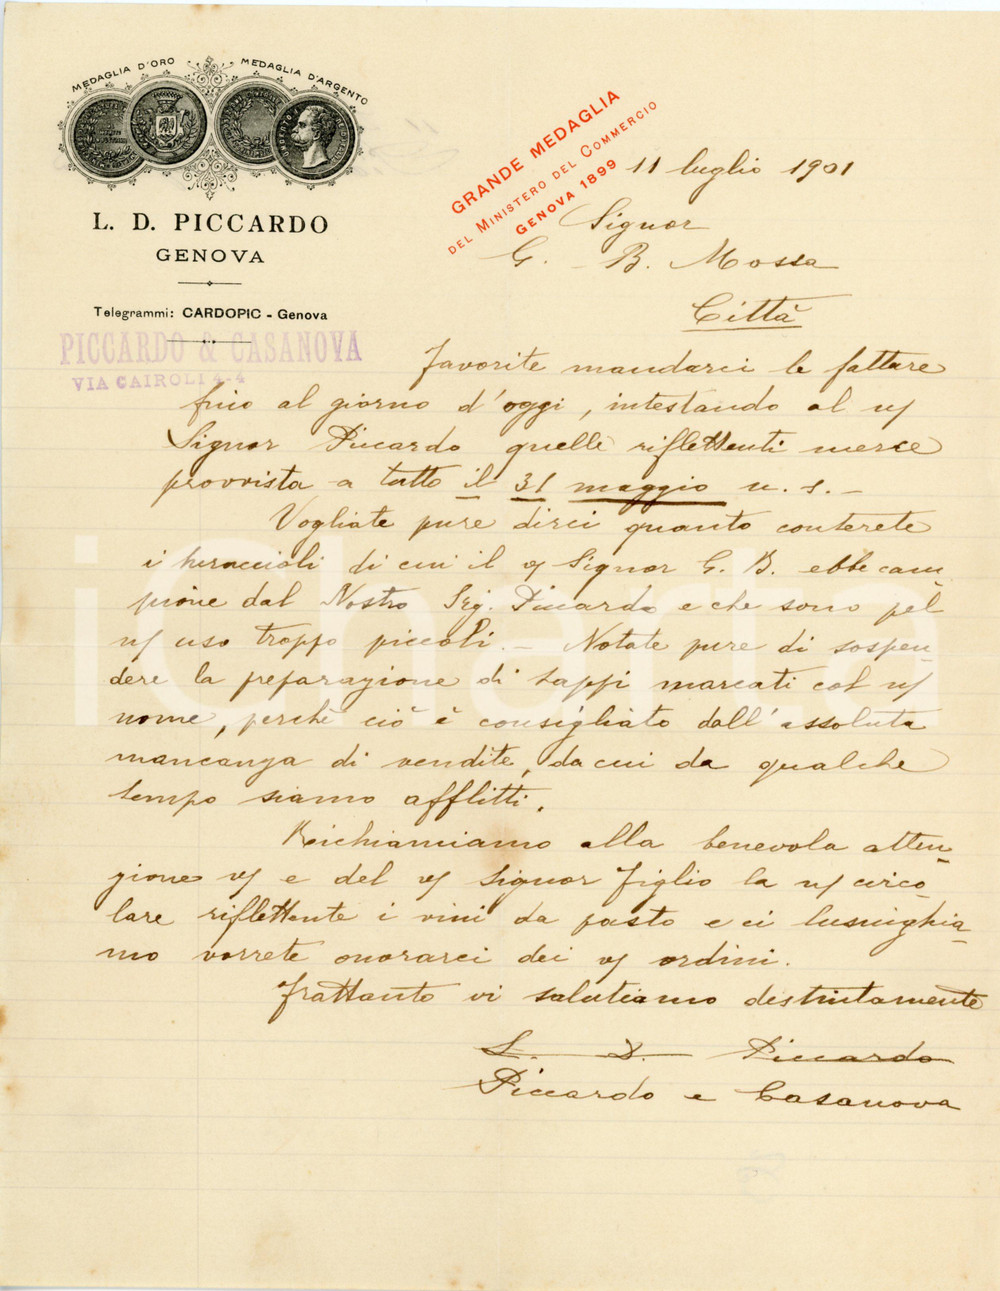 MEDAGLIA D'ORO MEDAGLIA D'ARGENTO
L. D. PICCARDO
GENOVA
Telegrammi: CARDOPIC - Genova
PICCARDO & CASANOVA
VIA CAIROLI 4-4
GRANDE MEDAGLIA
DEL MINISTERO DEL COMMERCIO
GENOVA 1899
11 luglio 1901
Signor
G. B. Mossa
Città
Favorite mandarci le fatture
fino al giorno d'oggi, intestando al n/
Signor Piccardo quelle riflettenti merce
provvista a tutto il 31 maggio u. s. -
Vogliate pure dirci quanto conterete
i turaccioli di cui il v/ Signor G. B. ebbe cam-
pione dal Nostro Sig. Piccardo e che sono pel
n/ uso troppo piccoli. - Notate pure di sospen-
dere la preparazione di tappi marcati col n/
nome, perchè ciò è consigliato dall'assoluta
mancanza di vendite, da cui da qualche
tempo siamo afflitti.
Richiamiamo alla benevola atten-
zione v/ e del v/ Signor Figlio la n/ circo-
lare riflettente i vini da pasto e ci lusinghia-
mo vorrete onorarci dei v/ ordini.
Frattanto vi salutiamo distintamente
L. D. Piccardo
Piccardo e Casanova
iCharta